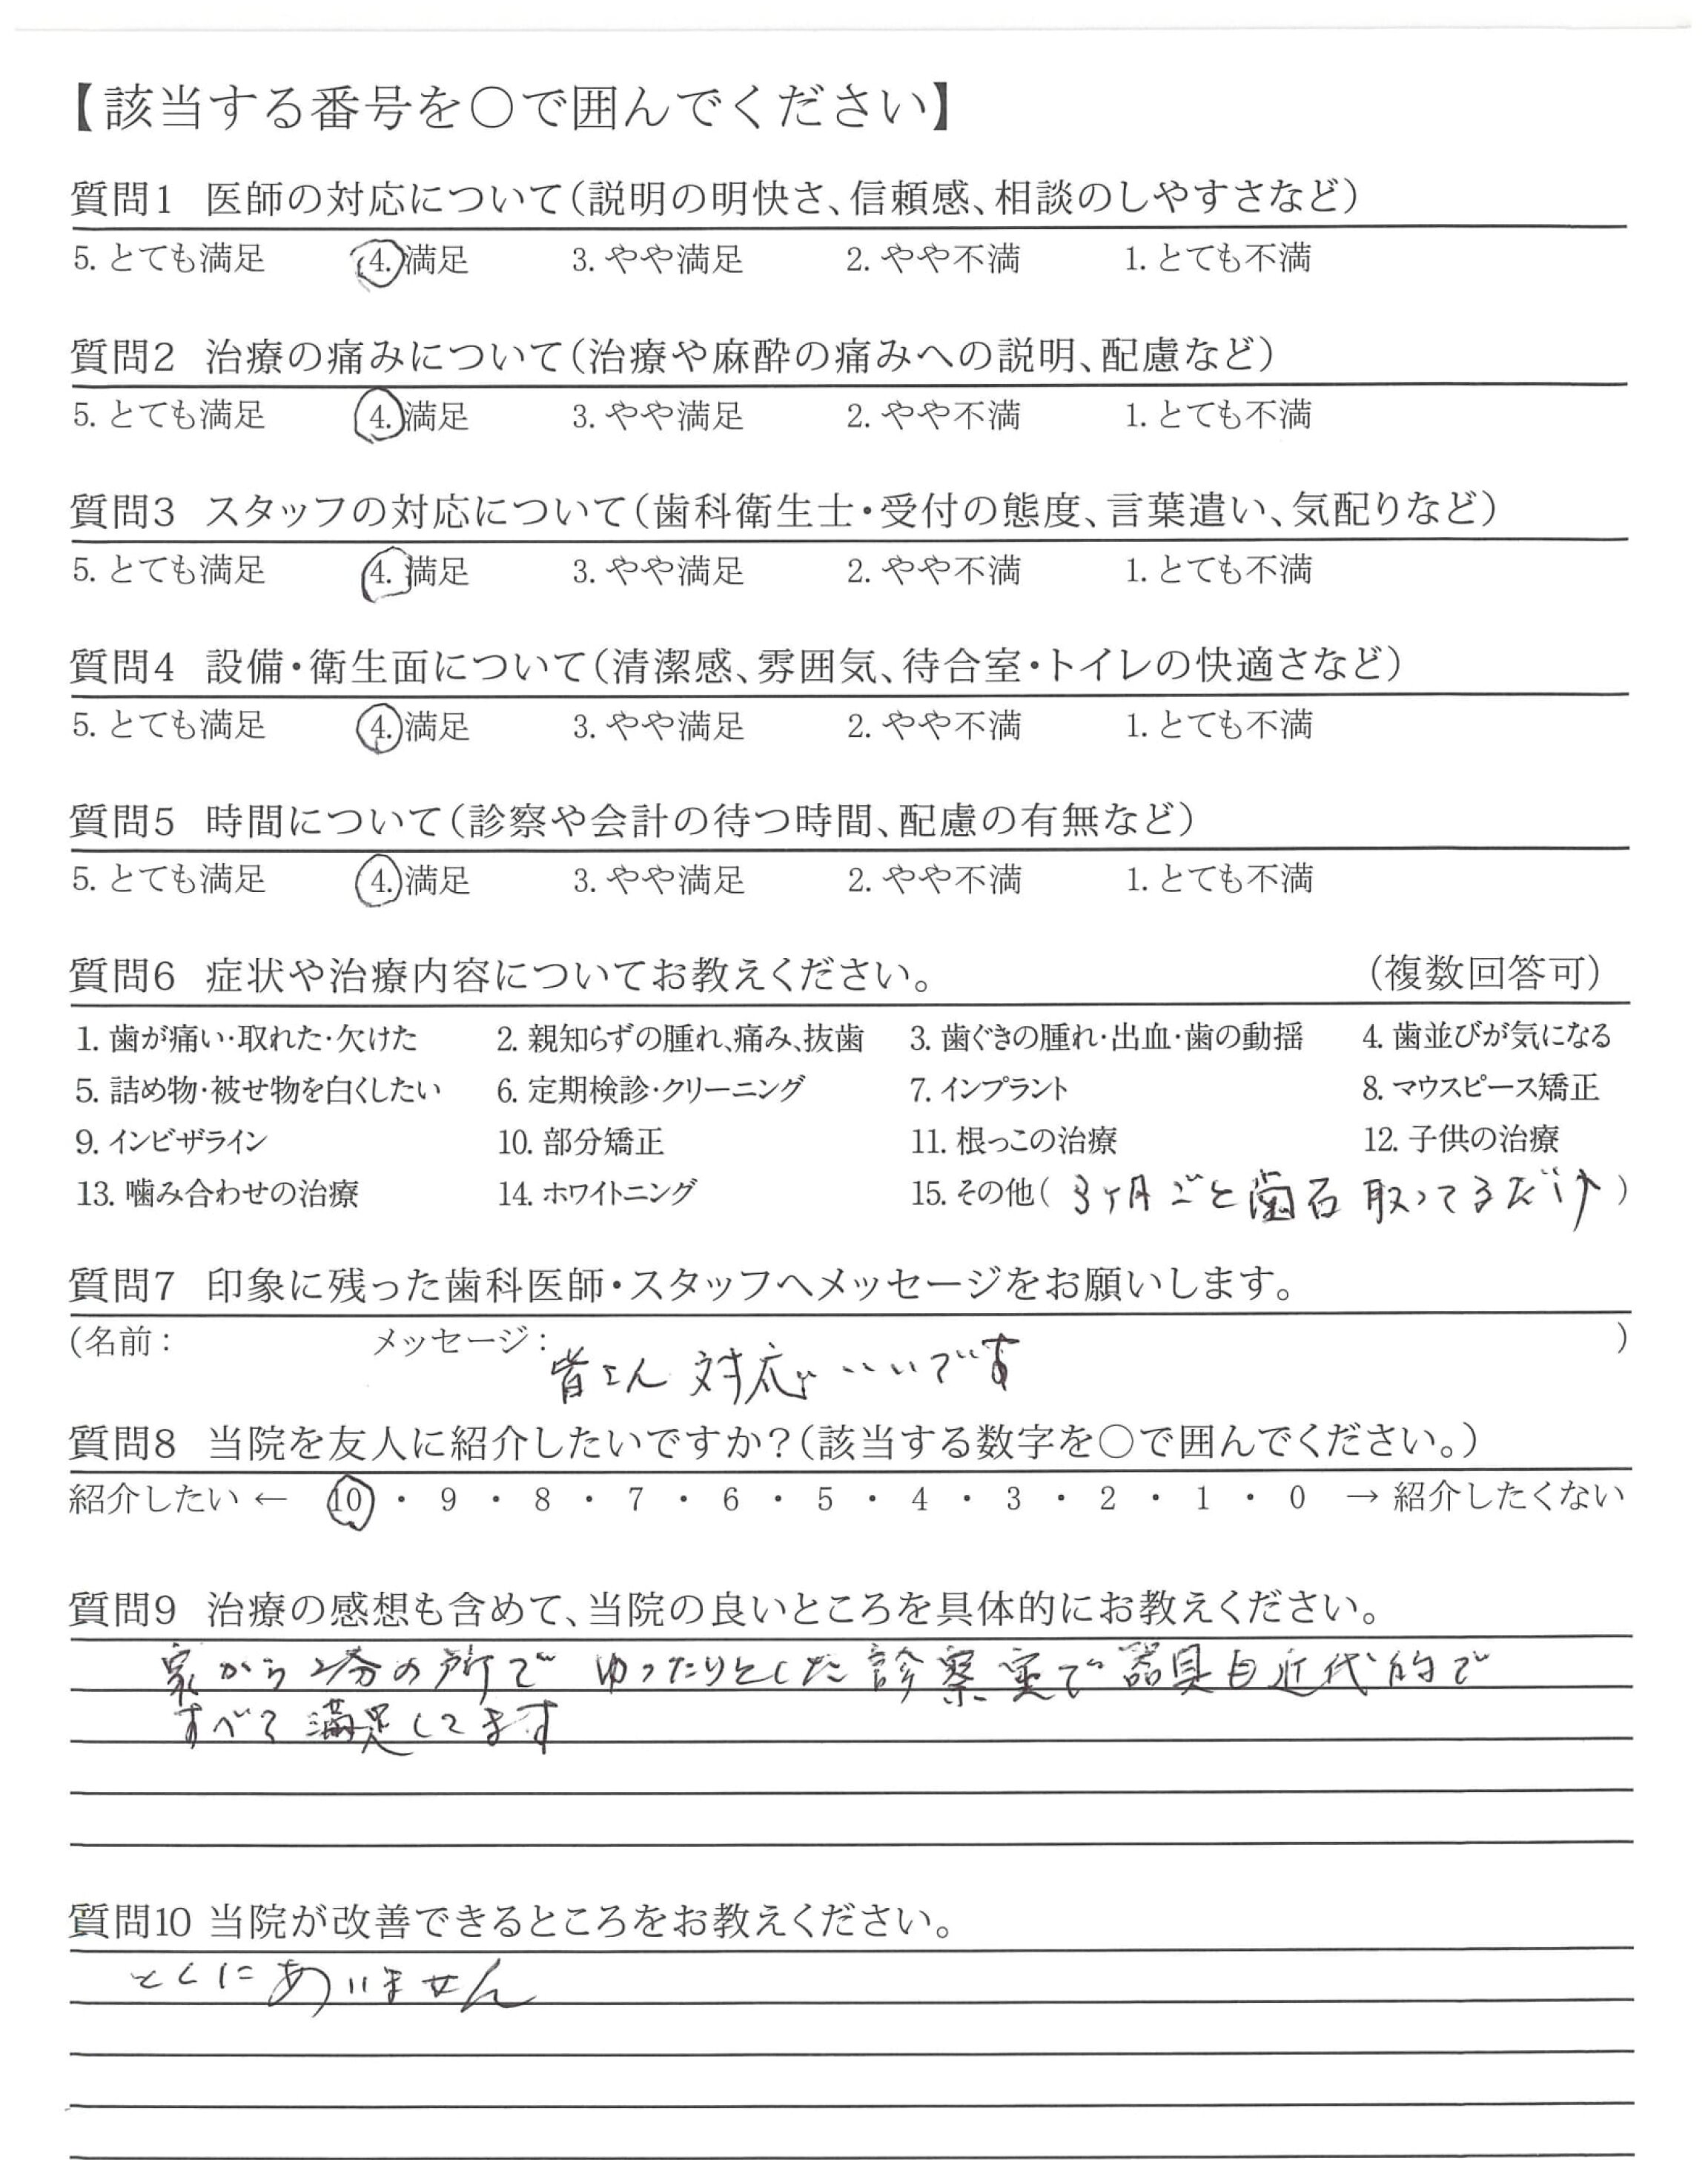 【該当する番号を〇で囲んでください】
質問1 医師の対応について(説明の明快さ、信頼感、相談のしやすさなど)
5. とても満足 4. 満足 3. やや満足 2. やや不満 1. とても不満
質問2 治療の痛みについて(治療や麻酔の痛みへの説明、配慮など)
5. とても満足 4. 満足 3. やや満足 2. やや不満 1. とても不満
質問3 スタッフの対応について(歯科衛生士・受付の態度、言葉遣い、気配りなど)
5. とても満足 4. 満足 3. やや満足 2. やや不満 1. とても不満
質問4 設備・衛生面について(清潔感、雰囲気、待合室・トイレの快適さなど)
5. とても満足 4. 満足 3. やや満足 2. やや不満 1. とても不満
質問5 時間について(診察や会計の待つ時間、配慮の有無など)
5. とても満足 4. 満足 3. やや満足 2. やや不満 1. とても不満
質問6 症状や治療内容についてお教えください。 (複数回答可)
1. 歯が痛い・取れた・欠けた 2. 親知らずの腫れ、痛み、抜歯 3. 歯ぐきの腫れ・出血・歯の動揺 4. 歯並びが気になる
5. 詰め物・被せ物を白くしたい 6. 定期検診・クリーニング 7. インプラント 8. マウスピース矯正
9. インビザライン 10. 部分矯正 11. 根っこの治療 12. 子供の治療
13. 噛み合わせの治療 14. ホワイトニング 15. その他( 3ヶ月ごと歯石取ってるだけ )
質問7 印象に残った歯科医師・スタッフへメッセージをお願いします。
(名前: メッセージ: )
皆さん対応いいです
質問8 当院を友人に紹介したいですか?(該当する数字を〇で囲んでください。)
紹介したい ← 10 ・ 9 ・ 8 ・ 7 ・ 6 ・ 5 ・ 4 ・ 3 ・ 2 ・ 1 ・ 0 → 紹介したくない
質問9 治療の感想も含めて、当院の良いところを具体的にお教えください。
家から2分の所で ゆったりとした診察室で器具も近代的で
すべて満足してます
質問10 当院が改善できるところをお教えください。
とくにありません